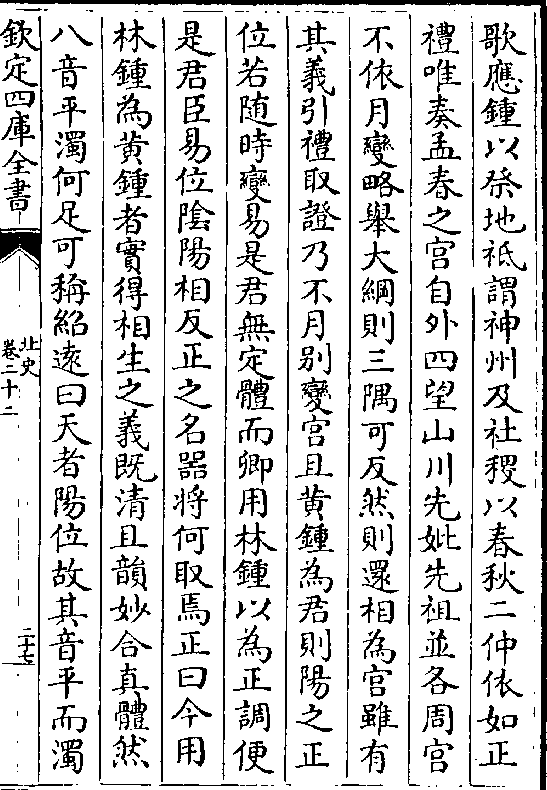 歌應鍾以祭地祇謂神州及社稷以春秋二仲依如正
禮唯奏孟春之宫自外四望山川先妣先祖並各周宫
不依月變略舉大綱則三隅可反然則還相為宫雖有
其義引禮取證乃不月别變宫且黄鍾為君則陽之正
位若随時變易是君無定體而卿用林鍾以為正調便
是君臣易位隂陽相反正之名器將何取焉正曰今用
林鍾為黄鍾者實得相生之義既清且韻妙合真體然
八音平濁何足可稱紹遠曰天者陽位故其音平而濁
欽定四庫全書
北史
卷二十二
二十七